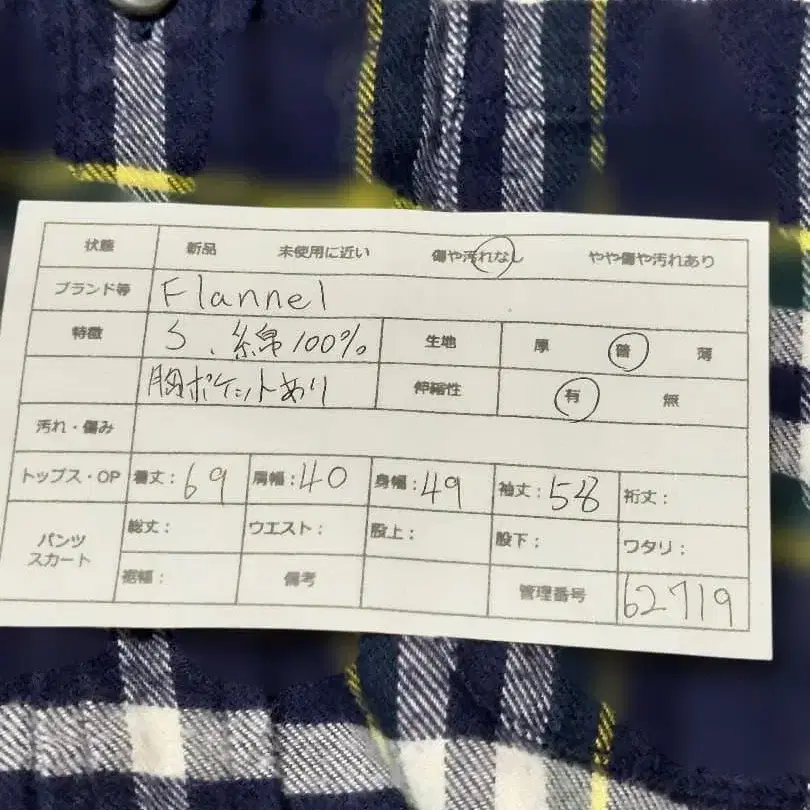 状態 新品 未使用に近い 傷や汚れなし やや傷や汚れあり
ブランド等 Flannel
特徴 S、綿100% 生地 厚 普 薄
胸ポケットあり 伸縮性 有 無
汚れ・傷み
トップス・OP 着丈：69 肩幅：40 身幅：49 袖丈：58 裄丈：
パンツ スカート 総丈： ウエスト： 股上： 股下： ワタリ：
裾幅： 備考 管理番号 62719